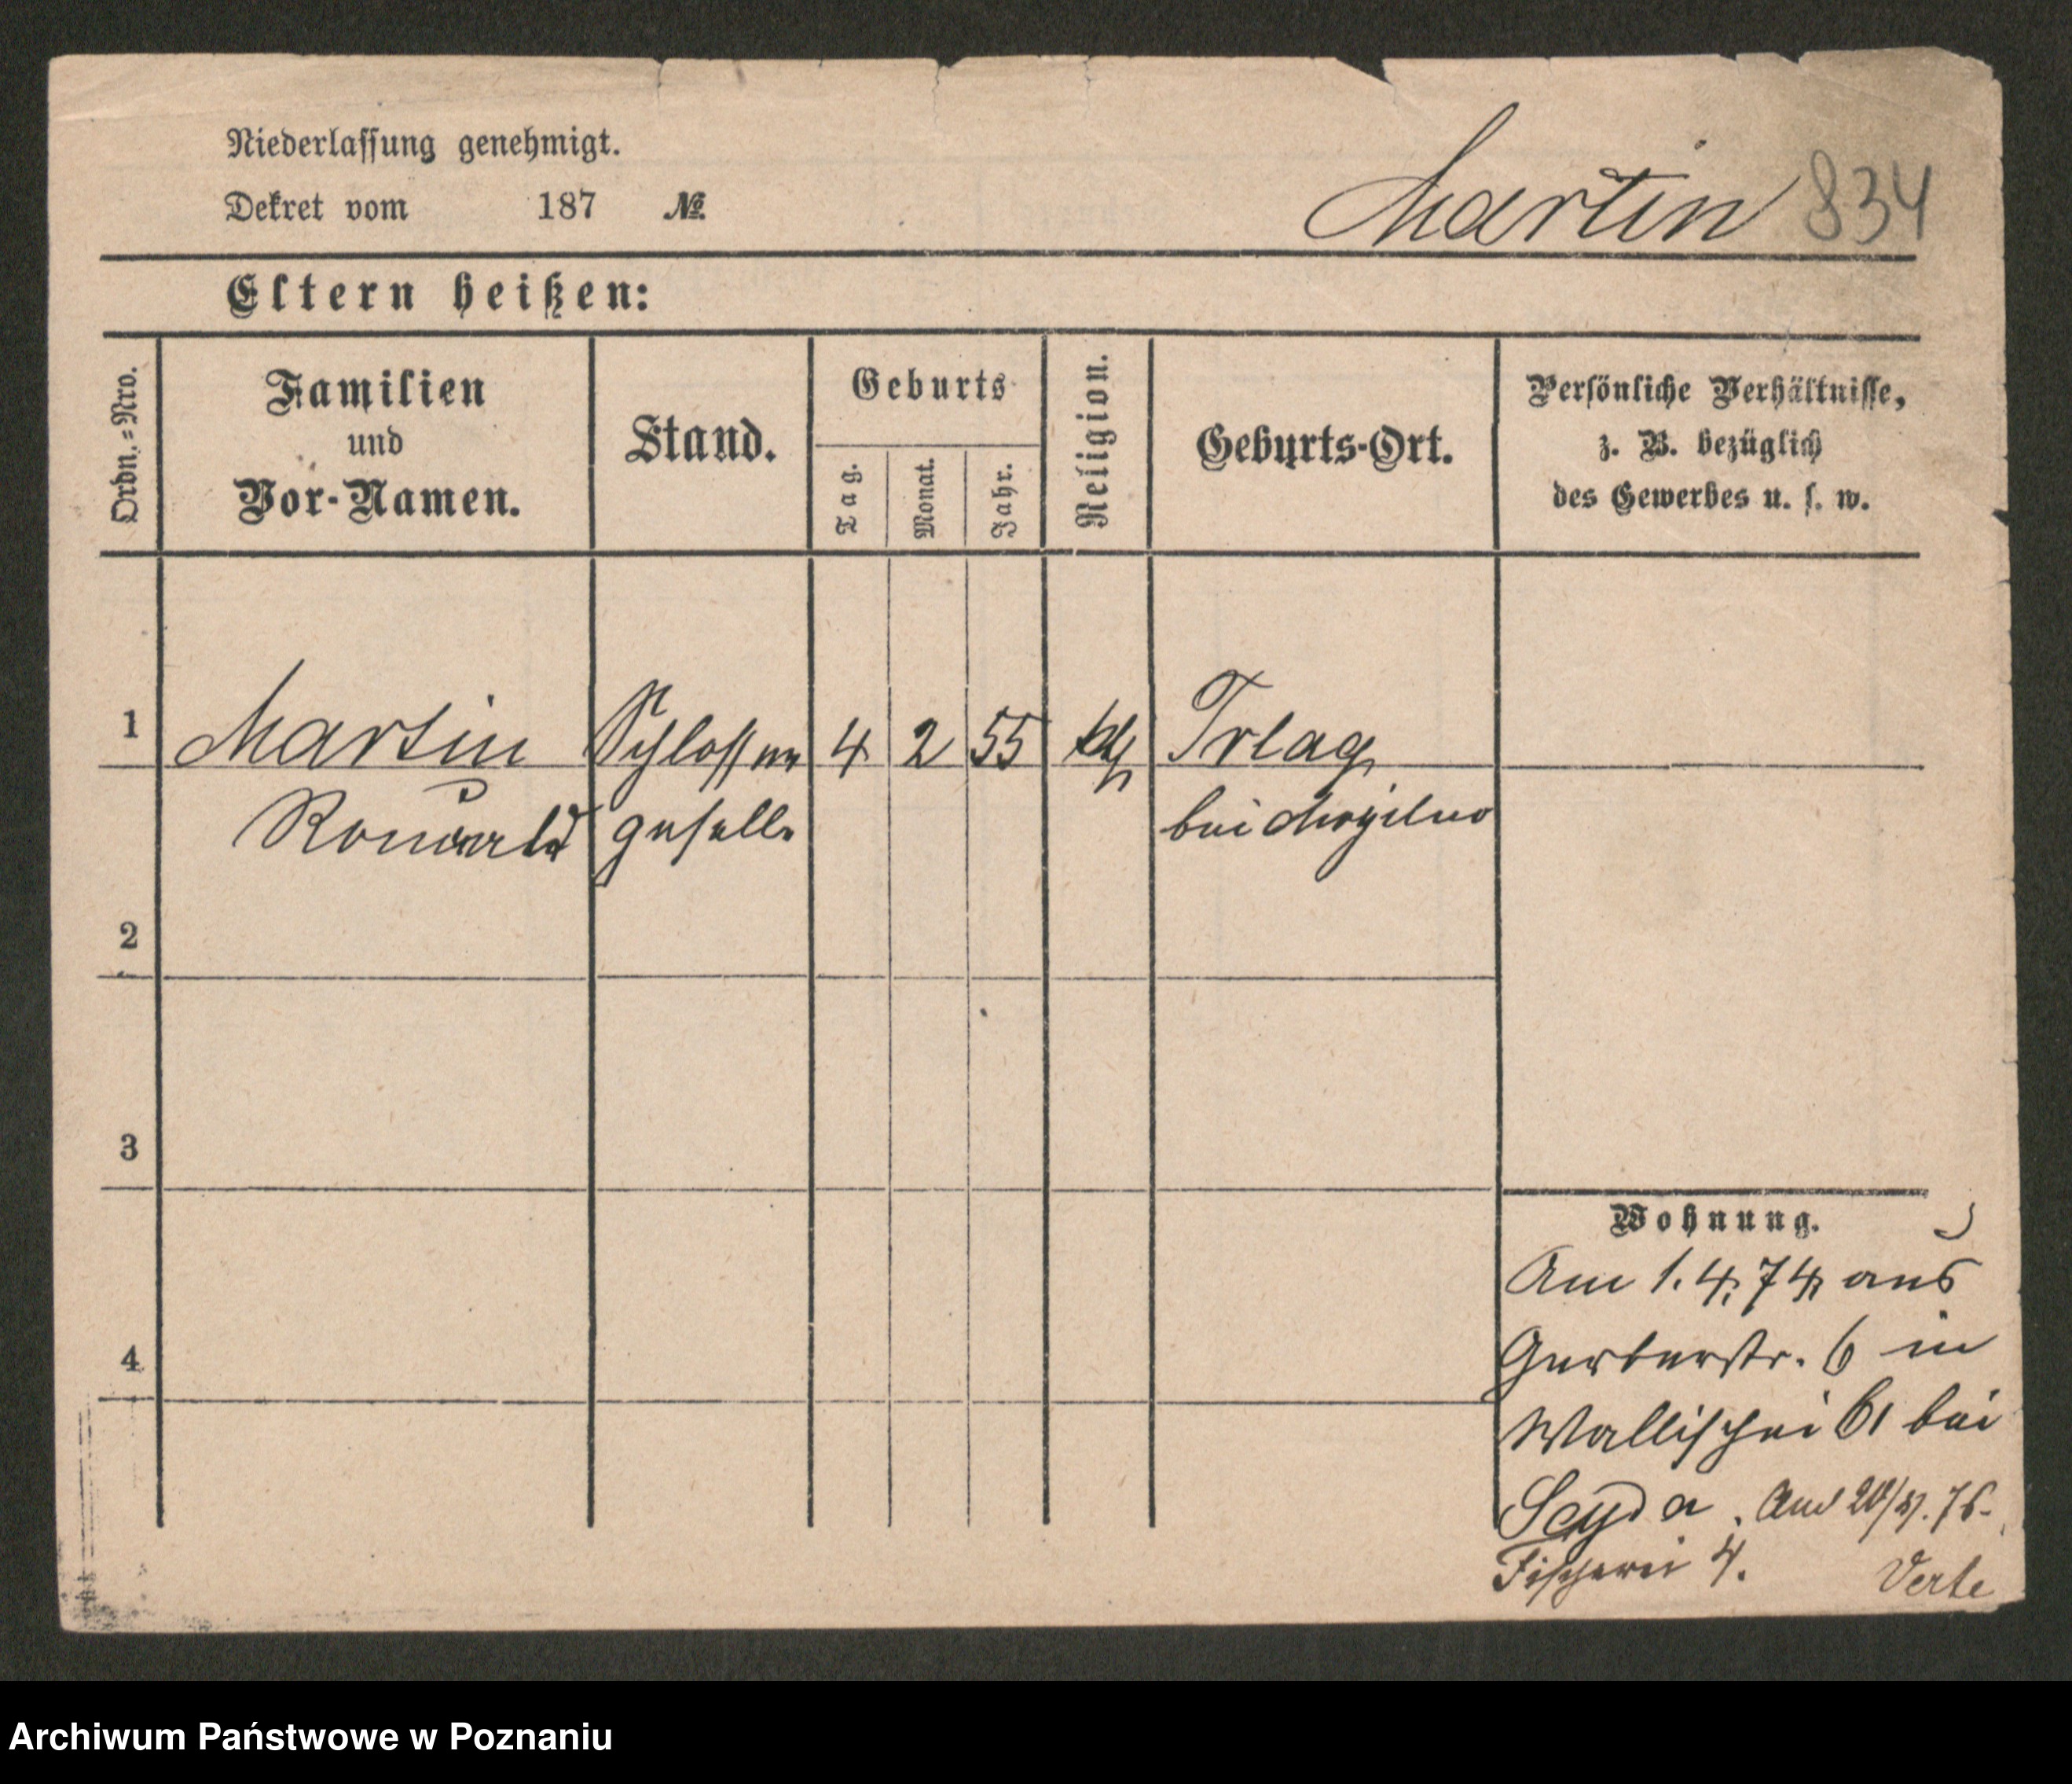 Niederlassung genehmigt.
Dekret vom 187 №
Martin 834
Eltern heißen:
Ordn.=Nro.
Familien
und
Vor-Namen.
Stand.
Geburts
Tag.
Monat.
Jahr.
Religion.
Geburts-Ort.
Persönliche Verhältnisse,
z. B. bezüglich
des Gewerbes u. s. w.
1 Martin Schlosser 4 2 55 kth Trlag
Romuald geselle bei Mogilno
2
3
4
Wohnung.
Am 1. 4. 74 aus
Gerberstr. 6 in
Wallischei 61 bei
Seyda.
Fischerei 4. Verte
Archiwum Państwowe w Poznaniu